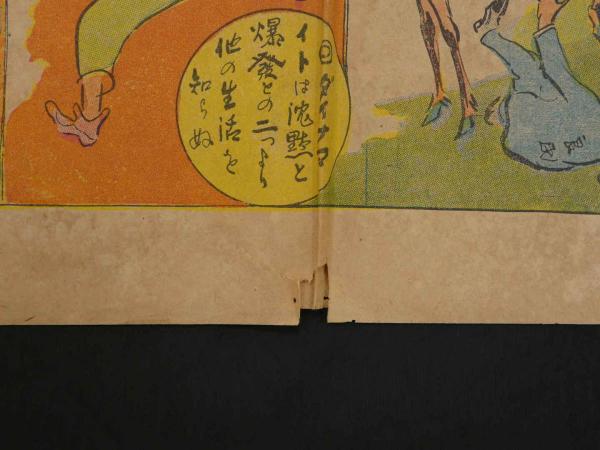 回ダイナマ
イトは沈黙と
爆發との二つより
他の生活を
知らぬ